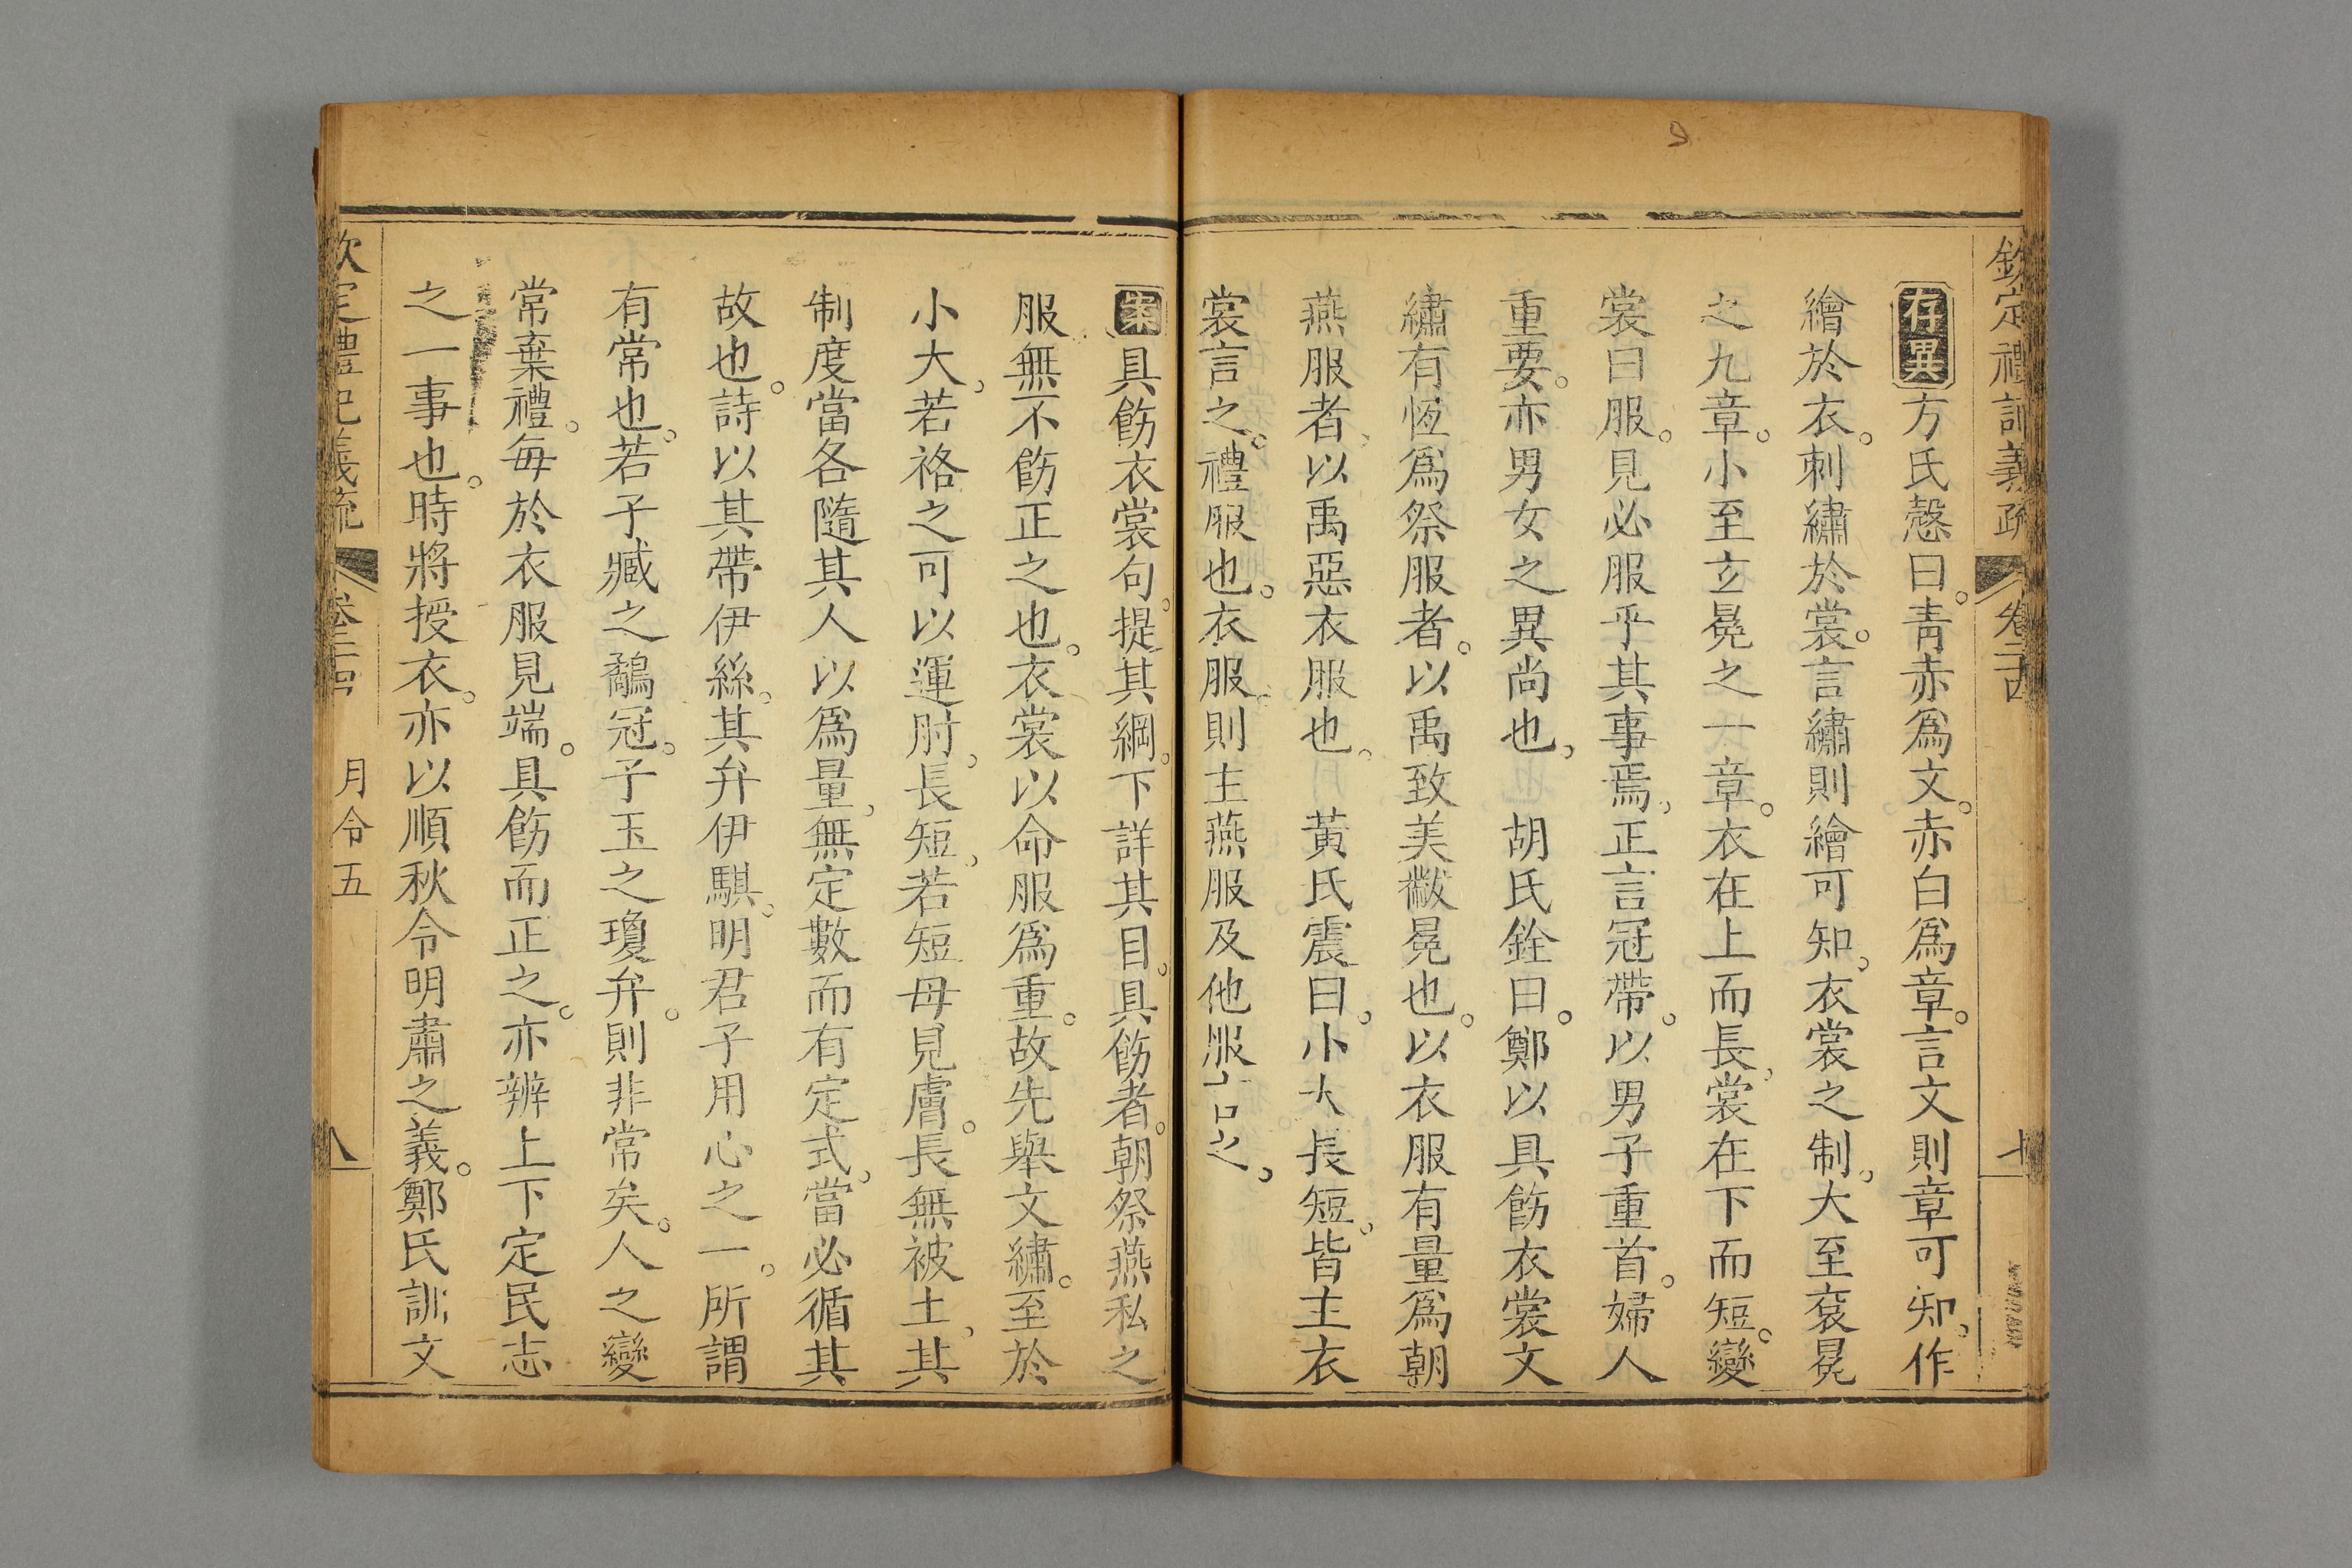 欽定禮記義疏 卷二十四 七
存異方氏慤曰。靑赤爲文。赤白爲章。言文則章可知。作
繪於衣。刺繡於裳。言繡則繪可知。衣裳之制。大至袞冕
之九章。小至玄冕之一章。衣在上而長。裳在下而短。變
裳曰服。見必服乎其事焉。正言冠帶。以男子重首。婦人
重要。亦男女之異尚也。胡氏銓曰。鄭以具飭衣裳文
繡有恆爲祭服者。以禹致美黻冕也。以衣服有量爲朝
燕服者。以禹惡衣服也。黃氏震曰。小大長短。皆主衣
裳言之。禮服也。衣服。則主燕服及他服言之。
案具飭衣裳句。提其綱。下詳其目。具飭者。朝祭燕私之
服無不飭正之也。衣裳以命服爲重。故先舉文繡。至於
小大。若袼之可以運肘。長短。若短毋見膚。長無被土。其
制度當各隨其人以爲量。無定數而有定式。當必循其
故也。詩以其帶伊絲。其弁伊騏。明君子用心之一。所謂
有常也。若子臧之鷸冠。子玉之瓊弁。則非常矣。人之變
常棄禮。每於衣服見端。具飭而正之。亦辨上下定民志
之一事也。時將授衣。亦以順秋令明肅之義。鄭氏訓文
欽定禮記義疏 卷二十四 月令五 八